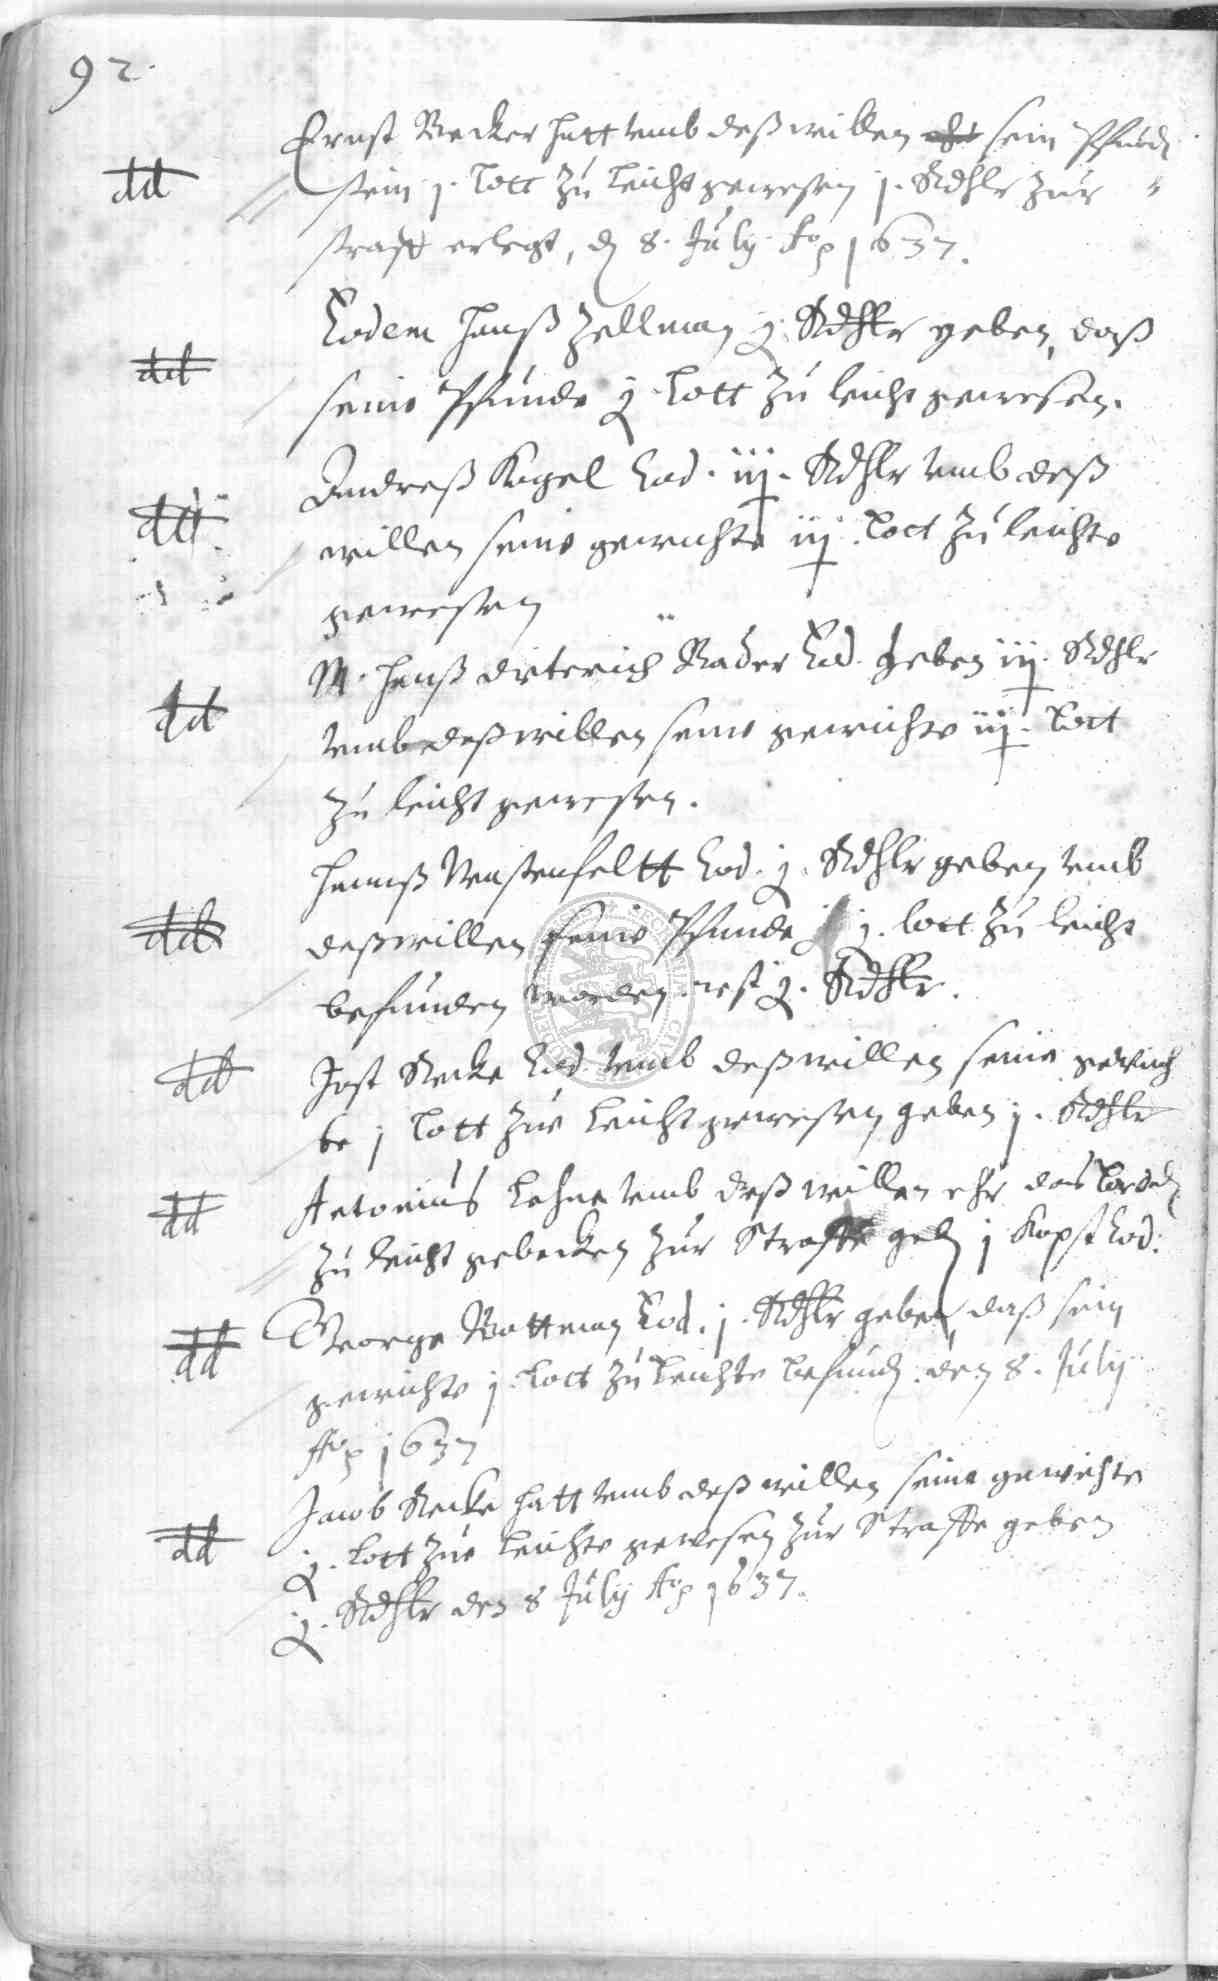 92.
Ernst Becker hatt umb deßwillen sein Pfund
dd
stein j. Lott zu leicht gewesen j. Rdhlr zur
straff erlegt, d 8. July Ao 1637.
Eodem Hanß Zellman j. Rdhlr geben, daß
dd
seine Pfunde j. Lott zu leicht gewesen.
Andreß Kogel Eod. iij. Rdhlr umb deß
dd
willen seine gewichte iij. Lott zu leichte
gewesen
M. Hanß Diterich Rader Eod. geben iij. Rdhlr
dd
umb deßwillen seine gewichte iij. Lott
zu leicht gewesen.
Hannß Wastenfeltt Eod. j. Rdhlr geben umb
dd
deßwillen seine Pfunde j. lott zu leicht
befunden worden. rest j. Rdhlr.
dd
Jost Recke Eod. umb deßwillen seine gewich
te j Lott zue leicht gewesen geben j. Rdhlr
dd
Antonius Lehne umb deßwillen ehr das brod
zu leicht gebacken zur Straffe geb j Kopst Eod:
George Bottman Eod. j. Rdhlr geben, daß sein
dd
gewichte j. Lott zu leichte befund. den 8. July
Ao 1637
Jacob Recke hatt umb deßwillen seine gewichte
dd
j. Lott zue leichte gewesen zur Straffe geben
j. Rdhlr den 8 July Ao 1637.